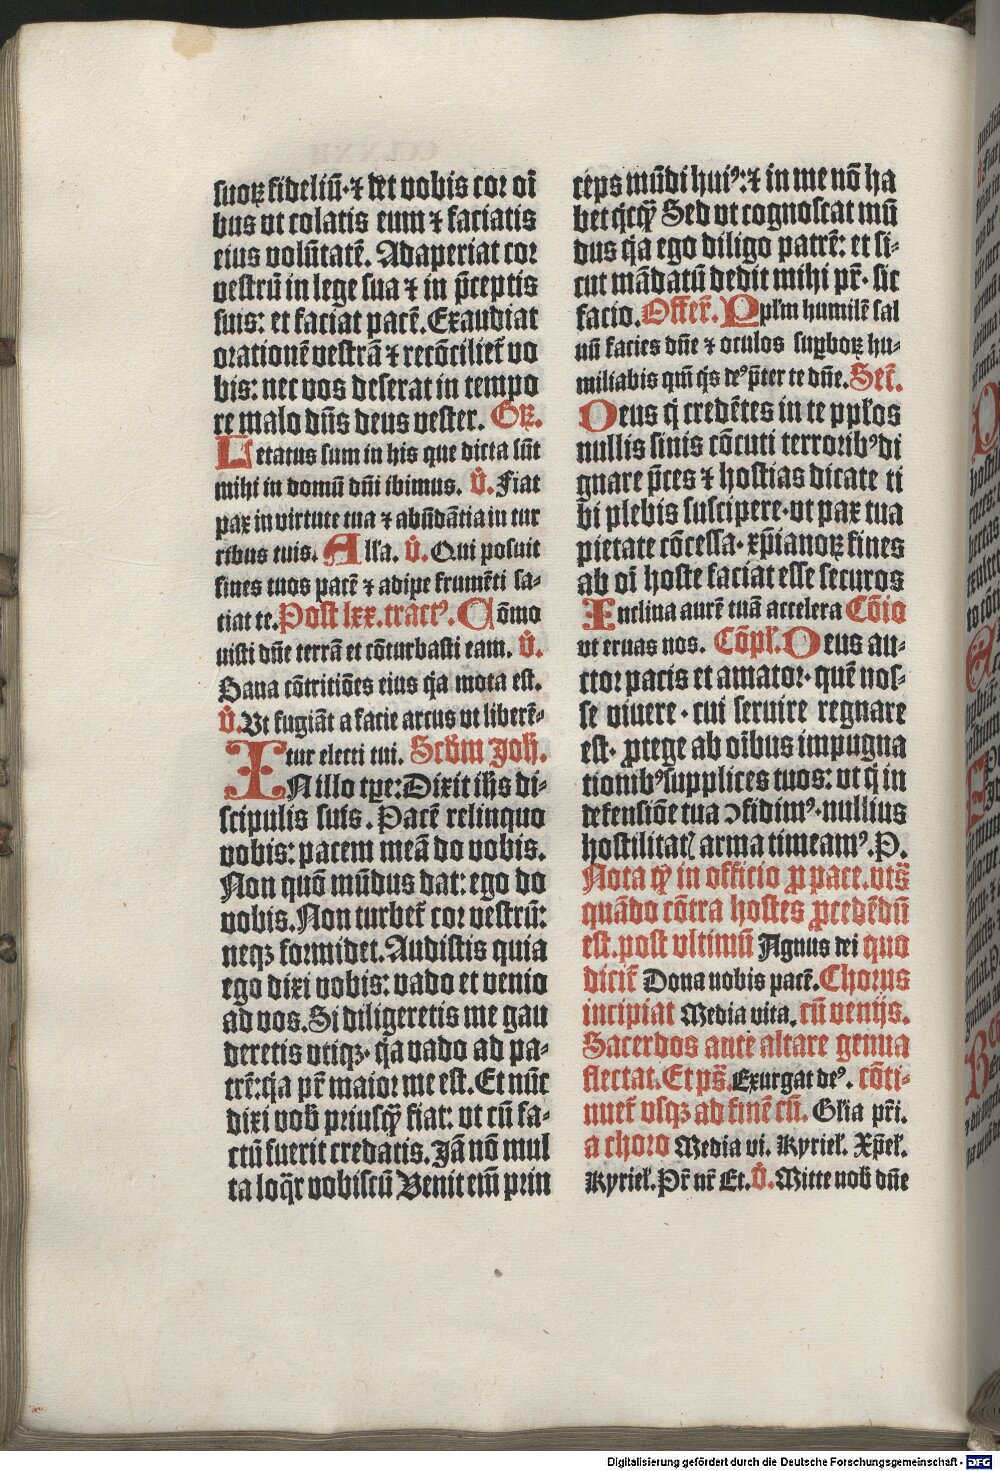 suoꝝ fideliū · ⁊ det vobis cor oī
bus vt colatis eum ⁊ faciatis
eius volūtatē. Adaperiat cor
vestrū in lege sua ⁊ in p̄ceptis
suis: et faciat pacē. Exaudiat
orationē vestrā ⁊ recōciliet̄ vo
bis: nec vos deserat in tempo
re malo dn̄s deus vester. Gꝝ.
Letatus sum in his que dicta sūt
mihi in domū dn̄i ibimus. v̊. Fiat
pax in virtute tua ⁊ abūdātia in tur
ribus tuis. Alla. v̊. Qui posuit
fines tuos pacē ⁊ adipe frumēti sa-
tiat te. Post lxx. tractꝰ. Cōmo
uisti dn̄e terrā et cōturbasti eam. v̊.
Sana cōtritiōes eius q̄a mota est.
v̊. Vt fugiāt a facie arcus vt liberē-
tur electi tui. Scd̄m Joh̄.
IN illo tꝑe: Dixit ih̄s di-
scipulis suis. Pacē relinquo
vobis: pacem meā do vobis.
Non quō mūdus dat: ego do
vobis. Non turbet̄ cor vestrū:
neqꝫ formidet. Audistis quia
ego dixi vobis: vado et venio
ad vos. Si diligeretis me gau
deretis vtiqꝫ · q̄a vado ad pa-
trē: q̄a pr̄ maior me est. Et nūc
dixi vob̄ priusqꝫ̄ fiat: vt cū fa-
ctū fuerit credatis. Jā nō mul
ta loq̄r vobiscū Venit em̄ prin
ceps mūdi huiꝰ: ⁊ in me nō ha
bet q̇cqꝫ̄ Sed vt cognoscat mū
dus q̄a ego diligo patrē: et si-
cut mādatū dedit mihi pr̄ · sic
facio. Offer̄. Ppl̄m humilē sal
uū facies dn̄e ⁊ oculos suꝑboꝝ hu-
miliabis qm̄ q̇s deꝰ p̄ter te dn̄e. Secr̄.
Deus q̇ credētes in te ppl̄os
nullis sinis cōcuti terroribꝰ di
gnare p̄ces ⁊ hostias dicate ti
bi plebis suscipere · vt pax tua
pietate cōcessa · xp̄ianoꝝ fines
ab oī hoste faciat esse securos
Inclina aurē tuā accelera Cōio
vt eruas nos. Cōpl̄. Deus au-
ctor pacis et amator · quē nos-
se viuere · cui seruire regnare
est · ꝓtege ab oībus impugna
tionibꝰ supplices tuos: vt q̇ in
defensiōe tua ↄfidimꝰ · nullius
hostilitatꝭ arma timeamꝰ. P.
Nota qꝫ̄ in officio ꝓ pace. vts̄
quādo cōtra hostes ꝓcedēdū
est. post vltimū Agnus dei quo
dicit̄ Dona nobis pacē. Chorus
incipiat Media vita. cū venijs.
Sacerdos ante altare genua
flectat. Et ps̄. Exurgat deꝰ. cōti-
nuet̄ vsqꝫ ad finē cū. Glia pr̄i.
a choro Media vi. Kyriel̄. Xp̄el̄.
Kyriel̄. Pr̄ nr̄ Et. v̊. Mitte nob̄ dn̄e
Digitalisierung gefördert durch die Deutsche Forschungsgemeinschaft - DFG